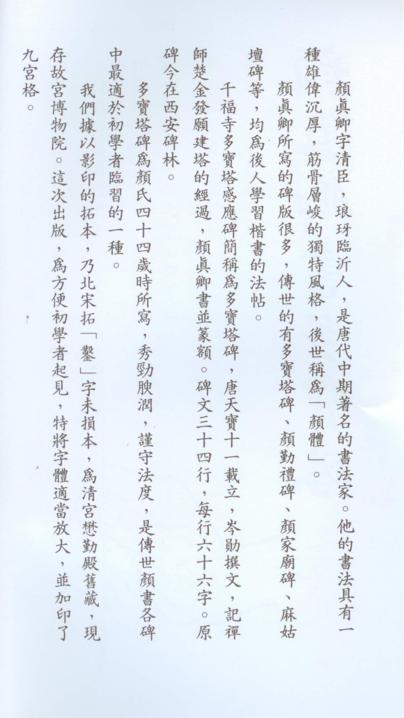 顏眞卿字清臣，琅玡臨沂人，是唐代中期著名的書法家。他的書法具有一
種雄偉沉厚，筋骨層峻的獨特風格，後世稱爲「顏體」。
顏眞卿所寫的碑版很多，傳世的有多寶塔碑、顏勤禮碑、顏家廟碑、麻姑
壇碑等，均爲後人學習楷書的法帖。
千福寺多寶塔感應碑簡稱爲多寶塔碑，唐天寶十一載立，岑勛撰文，記禪
師楚金發願建塔的經過，顏眞卿書並篆額。碑文三十四行，每行六十六字。原
碑今在西安碑林。
多寶塔碑爲顏氏四十四歲時所寫，秀勁腴潤，謹守法度，是傳世顏書各碑
中最適於初學者臨習的一種。
我們據以影印的拓本，乃北宋拓「鑿」字未損本，爲清宮懋勤殿舊藏，現
存故宮博物院。這次出版，爲方便初學者起見，特將字體適當放大，並加印了
九宮格。